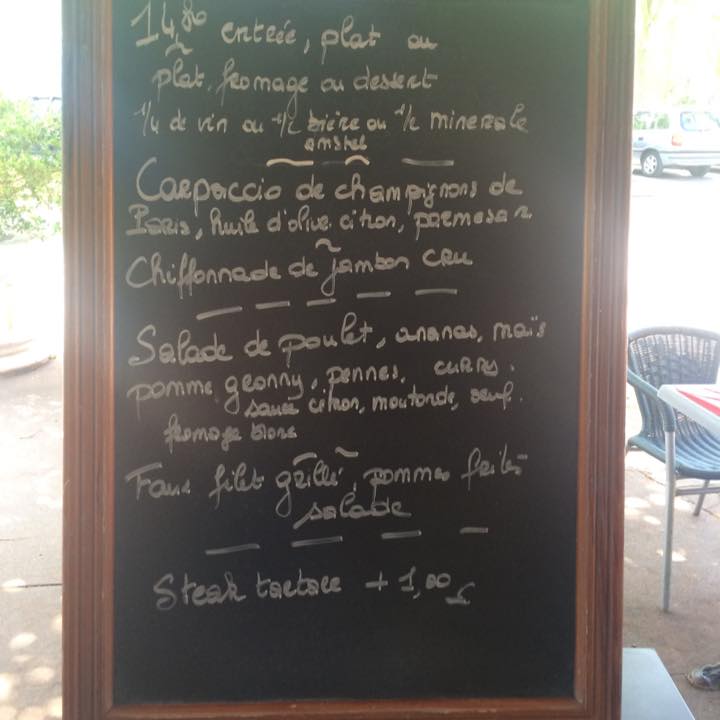 14,80 entrée, plat ou
plat, fromage ou dessert
1/4 de vin ou 1/2 bière ou 1/2 minerale
amstel
Carpaccio de champignons de
Paris, huile d'olive, citron, parmesan
Chiffonnade de jambon cru
Salade de poulet, ananas, maïs
pomme granny, pennes, curry.
sauce citron, moutarde, oeuf.
fromage blanc
Faux filet grillé, pommes frites
salade
Steak tartare + 1,00 €